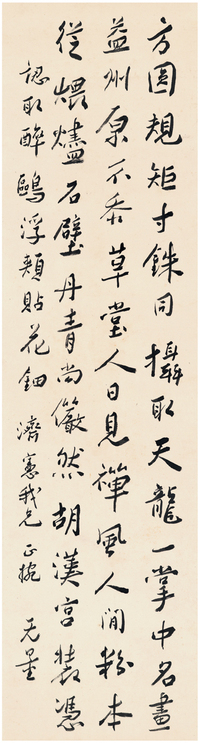 方圓規矩寸銖同攝取天龍一掌中名畫
益州原不忝草堂人日見禪風人間粉本
從煨燼石壁丹青尚儼然胡漢宮裝憑
認取醉鷗浮頰貼花鈿 濟憲我兄正捥 无量